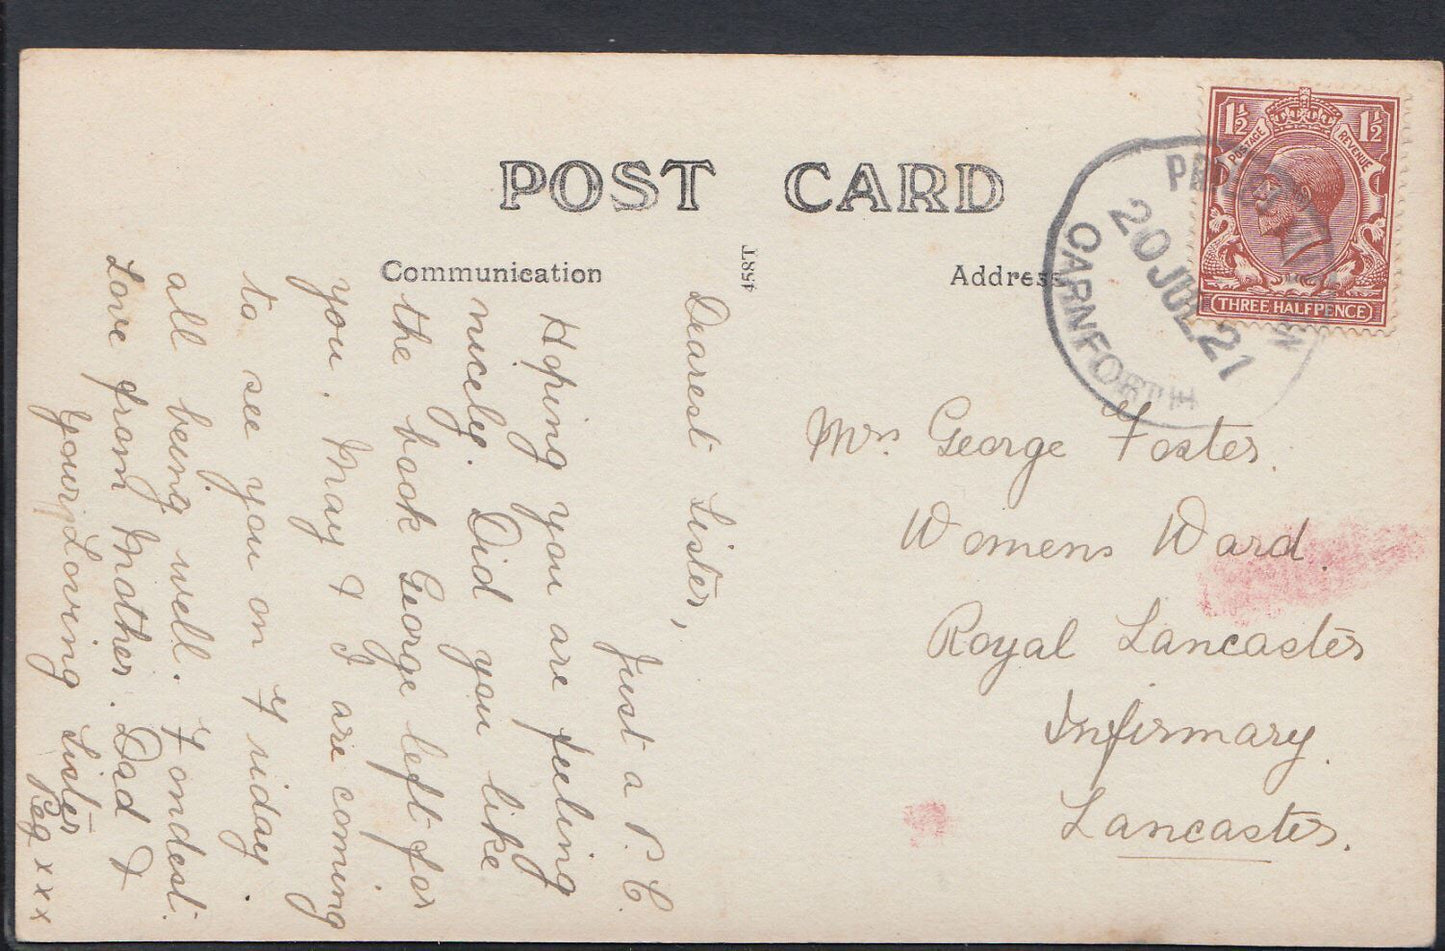 POST CARD
Communication
458T
Address
Dearest Sister,
Just a P.C.
Hoping you are feeling
nicely. Did you like
the book George left for
you. May & I are coming
to see you on Friday.
all being well. Fondest
Love from Mother. Dad &
your Loving Sister
Peg x x x
1½ 1½
POSTAGE REVENUE
THREE HALFPENCE
CARNFORTH
20 JUL 21
Mrs George Foster.
Womens Ward.
Royal Lancaster
Infirmary.
Lancaster.